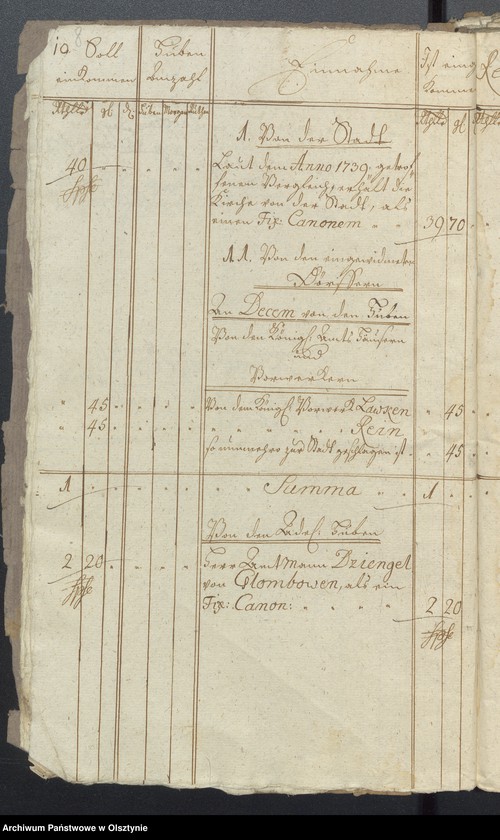 10 8 Soll Huben Einnahme Ist eing
einkommen Anzahl komme
Rthlr gl d Huben Morgen Ruthen Rthlr gl
1. Von der Stadt
40 Laut dem Anno 1739 getrof
fenen Vergleich, erhält die
Kirche von der Stadt, als
einen Fix: Canonem 39 70
11. Von den eingewidmeten
Dörffern
An Decem von den Huben
Von den Königl: Amts Häusern
und
Vorwerkern
45 Von dem Königl: Vorwerk Lawken 45
45 Rein
so nunmehro zur Stadt geschlagen ist 45
1 Summa 1
Von den Adel: Huben
2 20 Herr Amtmann Dziengel
von Glombowen, als ein
Fix: Canon: 2 20
Archiwum Państwowe w Olsztynie